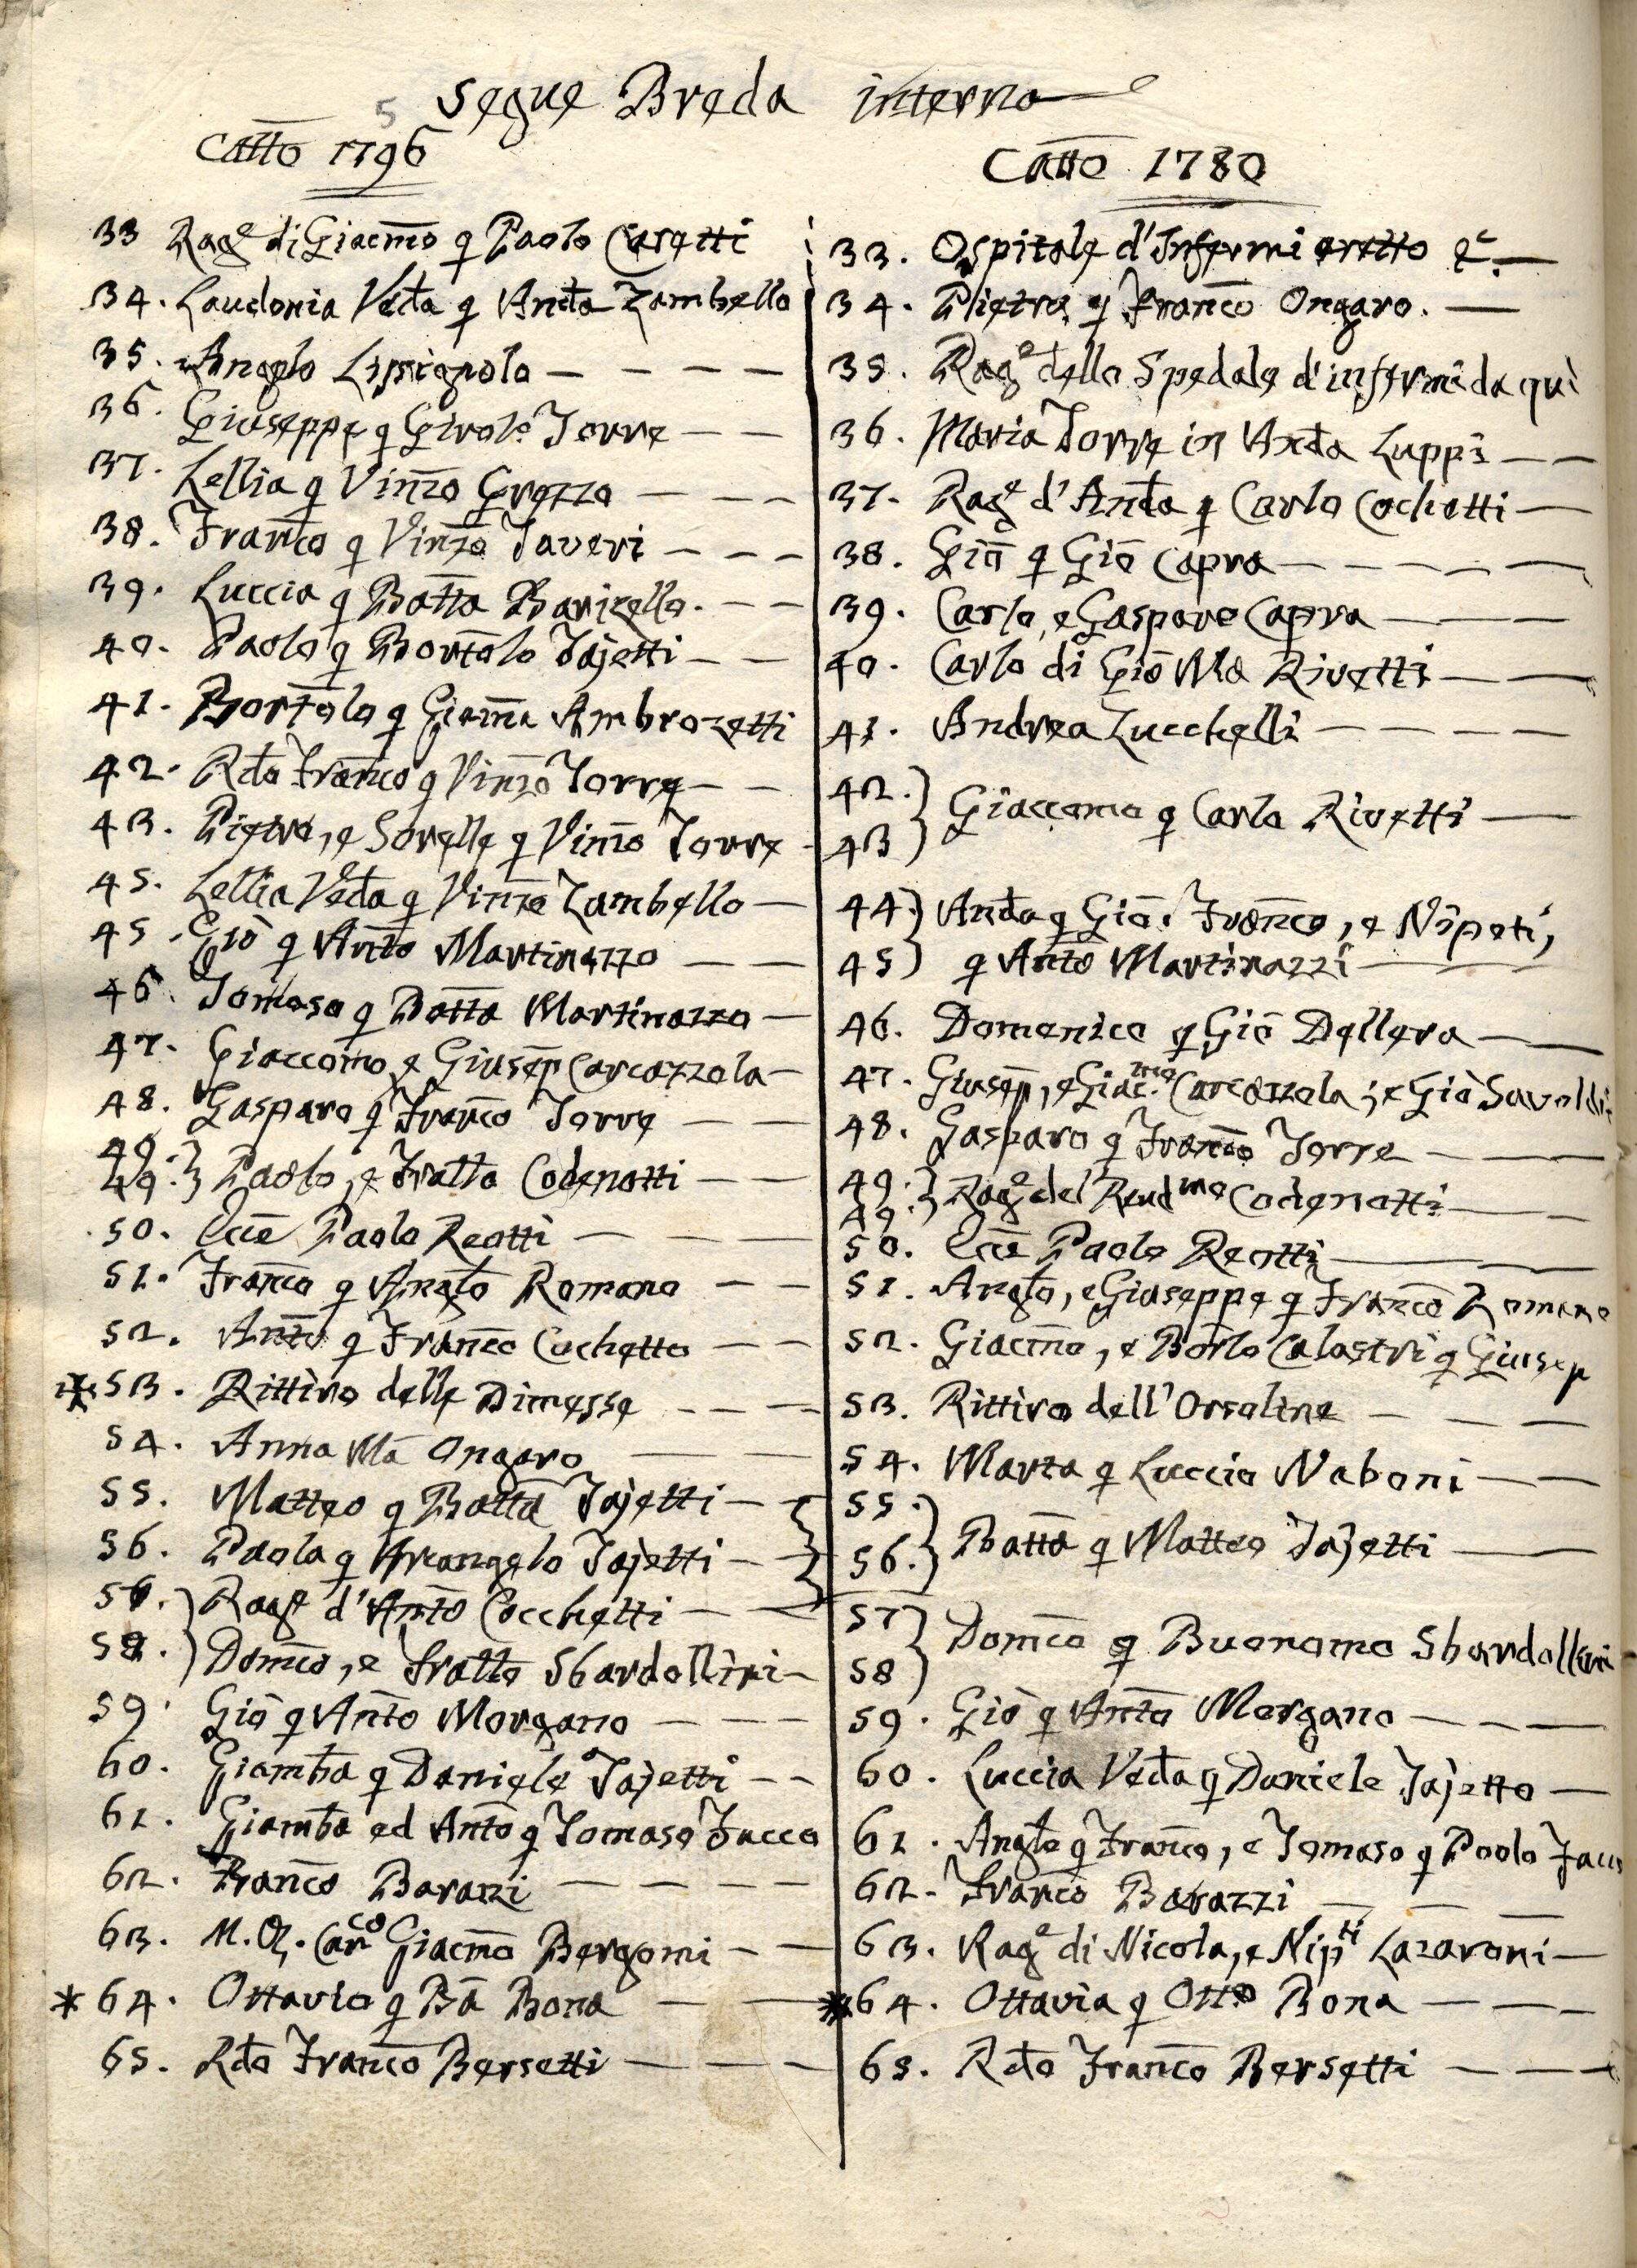 5
segue Breda interna
Catto 1796
33 Rag.e di Giacmo q Paolo Casetti
34. Laudonia Veda q Anda Zambello
35. Angelo Lissignolo
36. Giuseppe q Girolo Torre
37. Lellia q Vinzo Grozzo
38. Franco q Vinzo Taveri
39. Luccia q Batta Barizello.
40. Paolo q Bortolo Tajetti
41. Bortolo q Giamma Ambrozetti
42. Rdo Franco q Vinzo Torre
43. Pietro, e Sorelle q Vinzo Torre
45. Lellia Veda q Vinzo Zambello
45. Giò q Anto Martinazzo
46. Tomaso q Batta Martinazzo
47. Giaccomo, e Giusep Carcazzola
48. Gasparo q Franco Torre
49.
49. } Paolo, e Fratto Codenotti
50. Ecce Paolo Reotti
51. Franco q Anglo Romano
52. Anto q Franco Cochetto
* 53. Rittiro delle Dimesse
54. Anna Ma Ongaro
55. Matteo q Batta Tajetti
56. Paola q Arcangelo Tajetti
56. Rage d'Anto Cocchetti
58. Domco, e Fratto Sbardollini
59. Giò q Anto Morgano
60. Giamba q Daniele Tajetti
61. Giamba ed Anto q Tomaso Facco
62. Franco Barazzi
63. Canco Giacmo Bergomi
* 64. Ottavio q Ba Bona
65. Rdo Franco Bersetti
Catto 1780
33. Ospitale d'Infermi eretto
34. Pietro q Franco Ongaro.
35. Rage dello Spedale d'infermi da quì
36. Maria Torre in Anda Luppi
37. Rage d'Anda q Carlo Cochetti
38. Giò q Giò Capra
39. Carlo, e Gasparo Capra
40. Carlo di Giò Ma Rivetti
41. Andrea Zucchelli
42.
43 } Giaccomo q Carlo Rivetti
44. } Anda q Giò. Franco, e Nipoti,
45 } q Anto Martinazzi
46. Domenico q Giò Dellera
47. Giusep, e Giac.mo Carcazzola; e Giò Savoldi
48. Gasparo q Franco Torre
49.
49. } Rage del Rnd mo Codenotti
50. Ecce Paolo Reotti
51. Anglo, e Giuseppe q Franco Romano
52. Giacmo, e Borlo Calastri q Giusep
53. Rittiro dell'Orsoline
54. Marta q Luccio Naboni
55.
56. } Batta q Matteo Tajetti
57
58 } Domco q Buonomo Sbardollini
59. Giò q Anto Morgano
60. Luccia Veda q Daniele Tajetto
61. Anglo q Franco, e Tomaso q Paolo
62. Franco Barazzi
63. Rage di Nicola, e Nipti Lazaroni
* 64. Ottavia q Otto Bona
65. Rdo Franco Bersetti